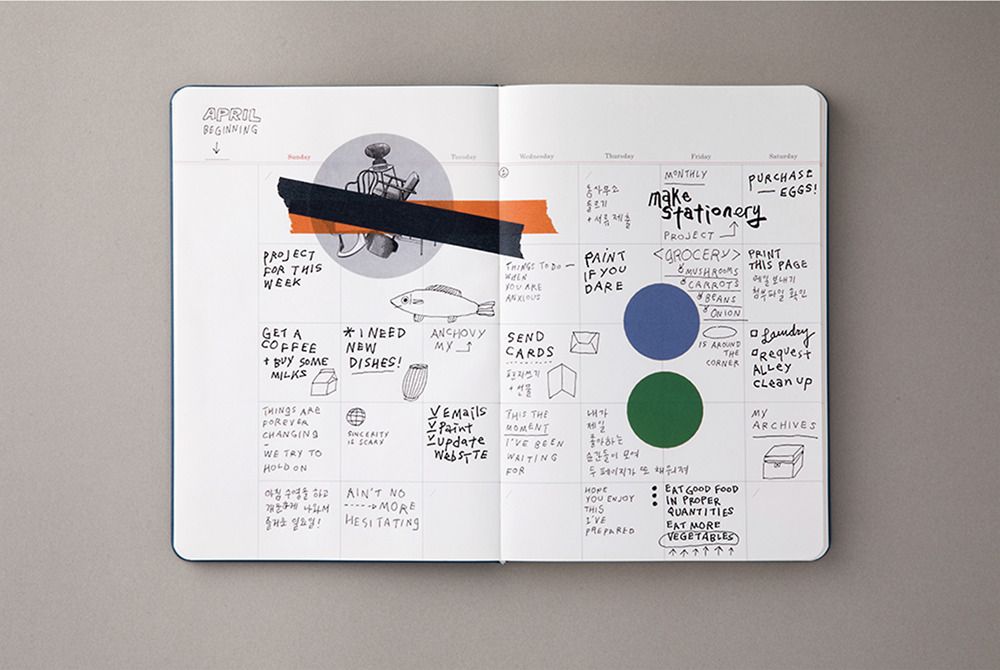 APRIL
BEGINNING
Sunday
Tuesday
Wednesday
Thursday
Friday
Saturday
동사무소
들르기
+ 서류 제출
MONTHLY
make
stationery
PROJECT
PURCHASE
EGGS!
PROJECT
FOR THIS
WEEK
THINGS TO DO —
WHEN
YOU ARE
ANXIOUS
PAINT
IF YOU
DARE
<GROCERY>
MUSHROOMS
CARROTS
BEANS
ONION
PRINT
THIS PAGE
메일 보내기
첨부파일 확인
GET A
COFFEE
+ BUY SOME
MILKS
* I NEED
NEW
DISHES!
ANCHOVY
MY
SEND
CARDS
편지쓰기
+ 선물
IS AROUND
THE
CORNER
Laundry
Request
ALLEY
CLEAN UP
THINGS ARE
FOREVER
CHANGING
-
WE TRY TO
HOLD ON
SINCERITY
IS SCARY
Emails
Paint
Update
WEBSITE
THIS THE
MOMENT
I'VE BEEN
WAITING
FOR
내가
제일
좋아하는
순간들이 모여
두 페이지가 또 채워져
MY
ARCHIVES
아침 수영을 하고
개운하게 나와서
즐거운 일요일!
AIN'T NO
MORE
HESITATING
HOPE
YOU ENJOY
THIS
I'VE
PREPARED
EAT GOOD FOOD
IN PROPER
QUANTITIES
EAT MORE
VEGETABLES